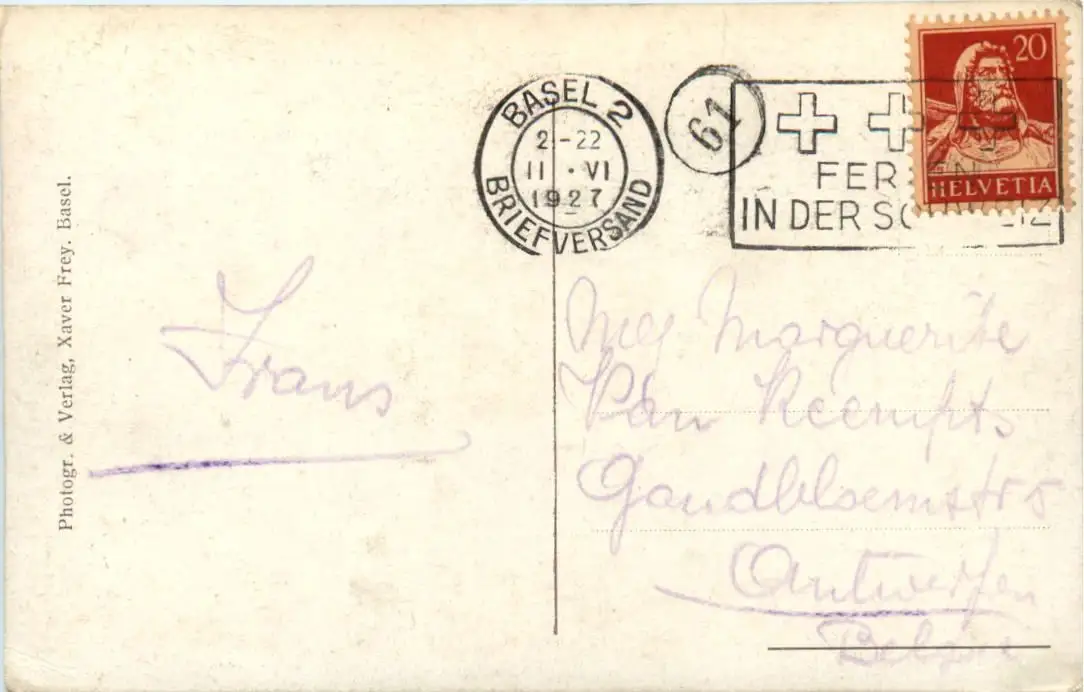 BASEL 2
2-22
11 · VI
1927
BRIEFVERSAND
61
20
HELVETIA
FER EN
IN DER SCHWEIZ
Photogr. & Verlag, Xaver Frey. Basel.
Frans
Marguerite
Van
Goudbloemstr 5
Antwerpen